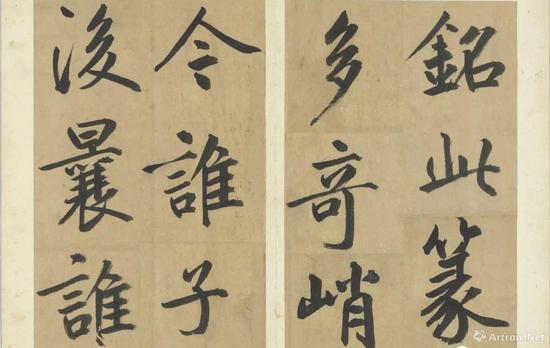 銘此篆
多奇峭
今誰子
後曩誰
Artron.Net